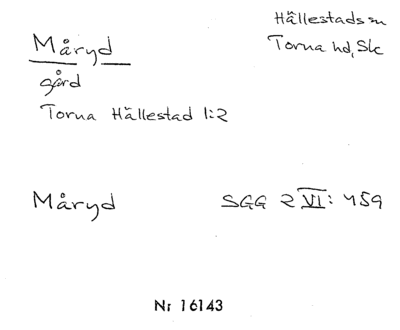 Måryd
Hällestads sn
Torna hd, Sk
gård
Torna Hällestad 1:2
Måryd
SGG 2 VI: 459
Nr 16143